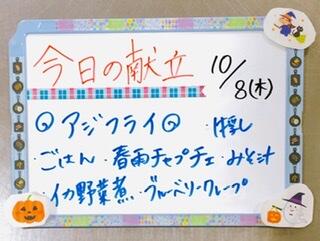 今日の献立 10/8(木)
◎アジフライ◎ ・牛乳
・ごはん ・春雨チャプチェ ・みそ汁
・イカ野菜煮 ・ブルーベリークレープ